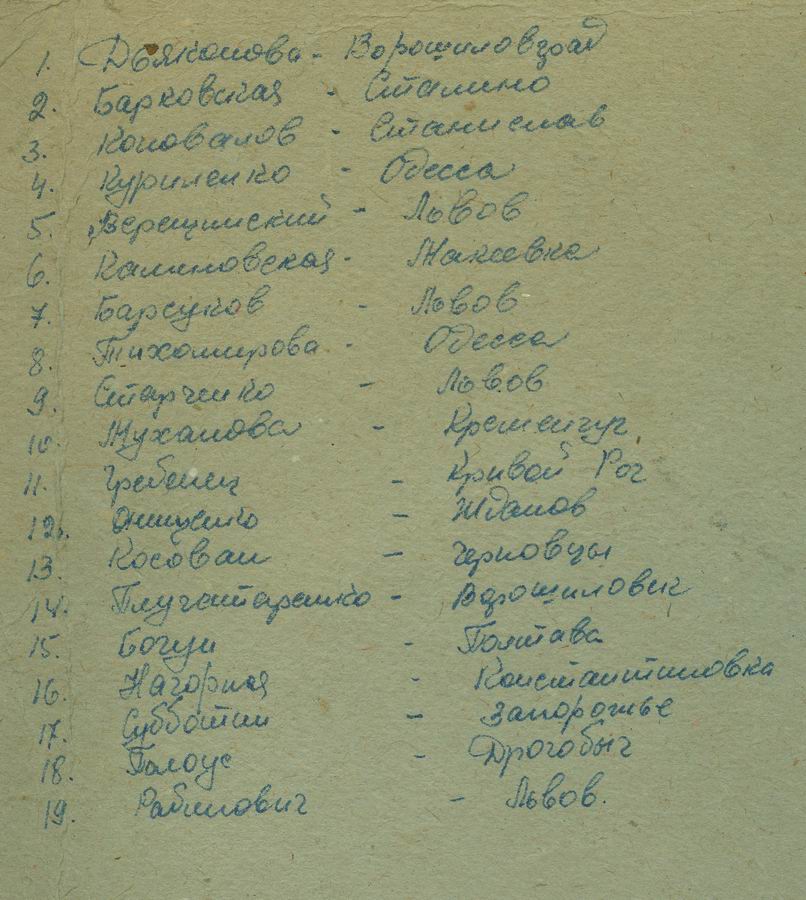 1. Дьяконова - Ворошиловград
2. Барковская - Сталино
3. Коновалов - Станислав
4. Куриленко - Одесса
5. Верещинский - Львов
6. Калиновская - Макеевка
7. Барсуков - Львов
8. Тихомирова - Одесса
9. Старченко - Львов
10. Муханова - Кременчуг
11. Гребенец - Кривой Рог
12. Онищенко - Жданов
13. Косован - Черновцы
14. - Ворошиловск
15. Богун - Полтава
16. Нагорная - Константиновка
17. Субботин - Запорожье
18. Галоус - Дрогобыч
19. Рабинович - Львов.